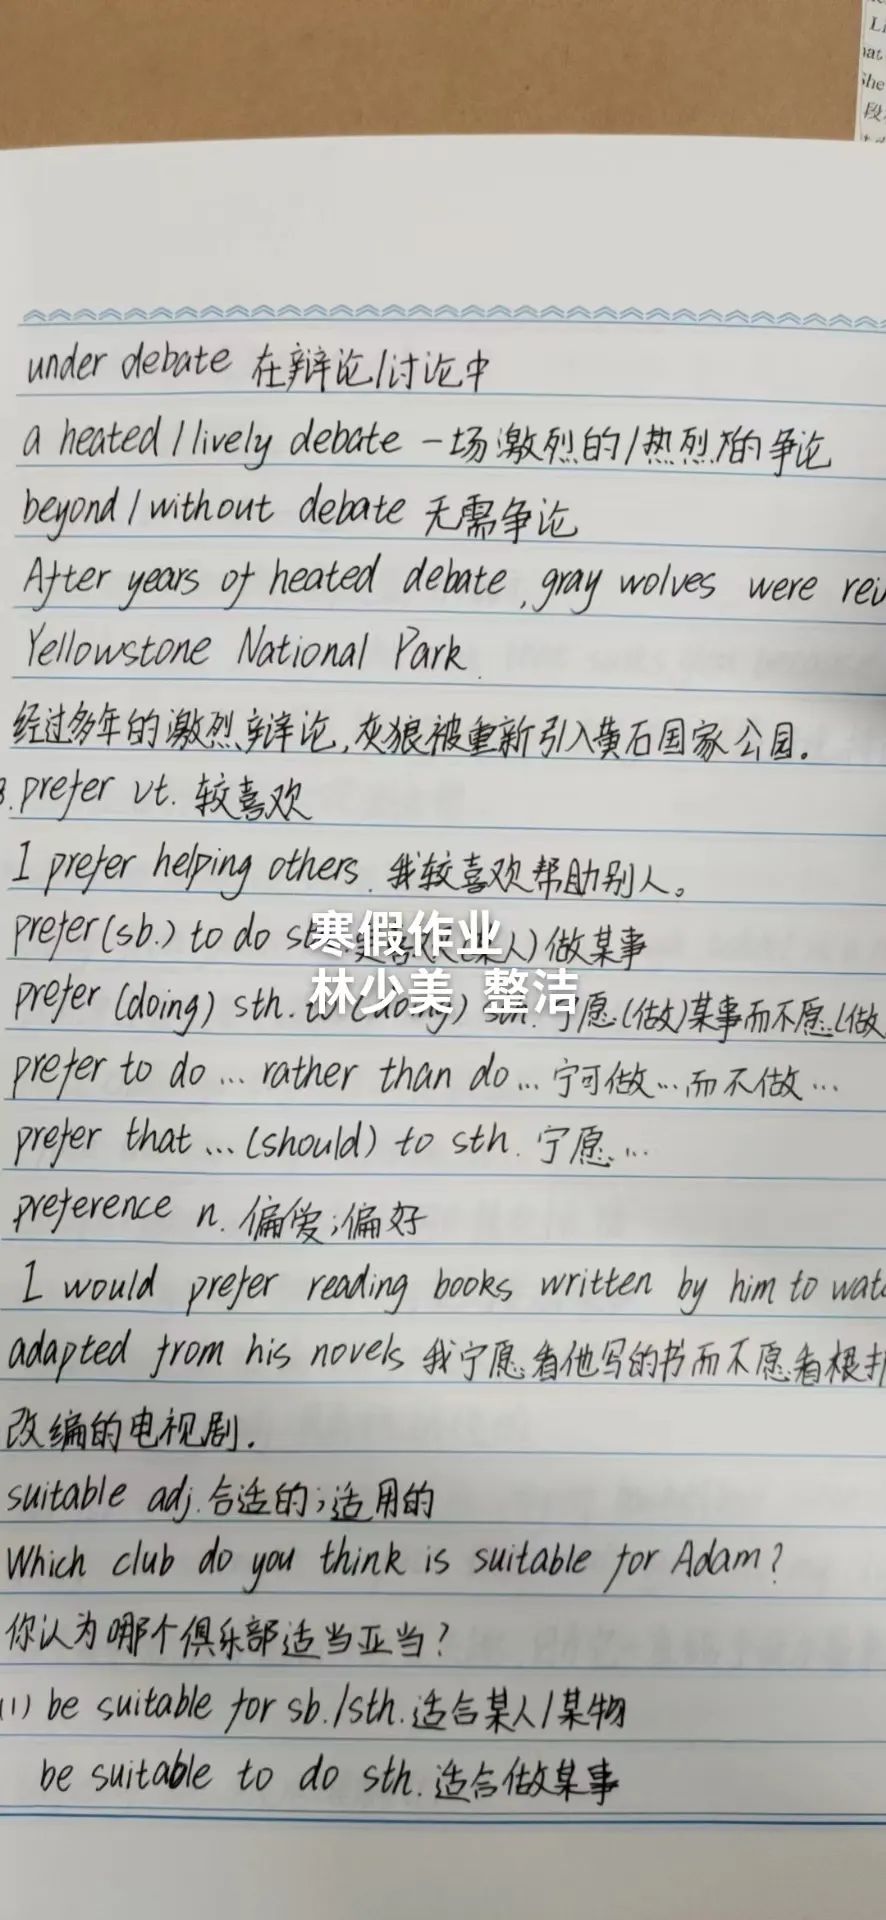 under debate 在辩论/讨论中
a heated/lively debate 一场激烈的/热烈的争论
beyond/without debate 无需争论
After years of heated debate, gray wolves were
Yellowstone National Park.
经过多年的激烈辩论,灰狼被重新引入黄石国家公园。
3.prefer vt. 较喜欢
I prefer helping others. 我较喜欢帮助别人。
prefer(sb.) to do 做某事
寒假作业
prefer (doing) sth. 宁愿(做)某事而不愿(做
林少美 整洁
prefer to do ... rather than do ... 宁可做...而不做...
prefer that ... (should) to sth. 宁愿...
preference n. 偏爱;偏好
I would prefer reading books written by him to
adapted from his novels 我宁愿看他写的书而不愿看根
改编的电视剧.
suitable adj. 合适的;适用的
Which club do you think is suitable for Adam?
你认为哪个俱乐部适当亚当?
(1) be suitable for sb./sth. 适合某人/某物
be suitable to do sth. 适合做某事